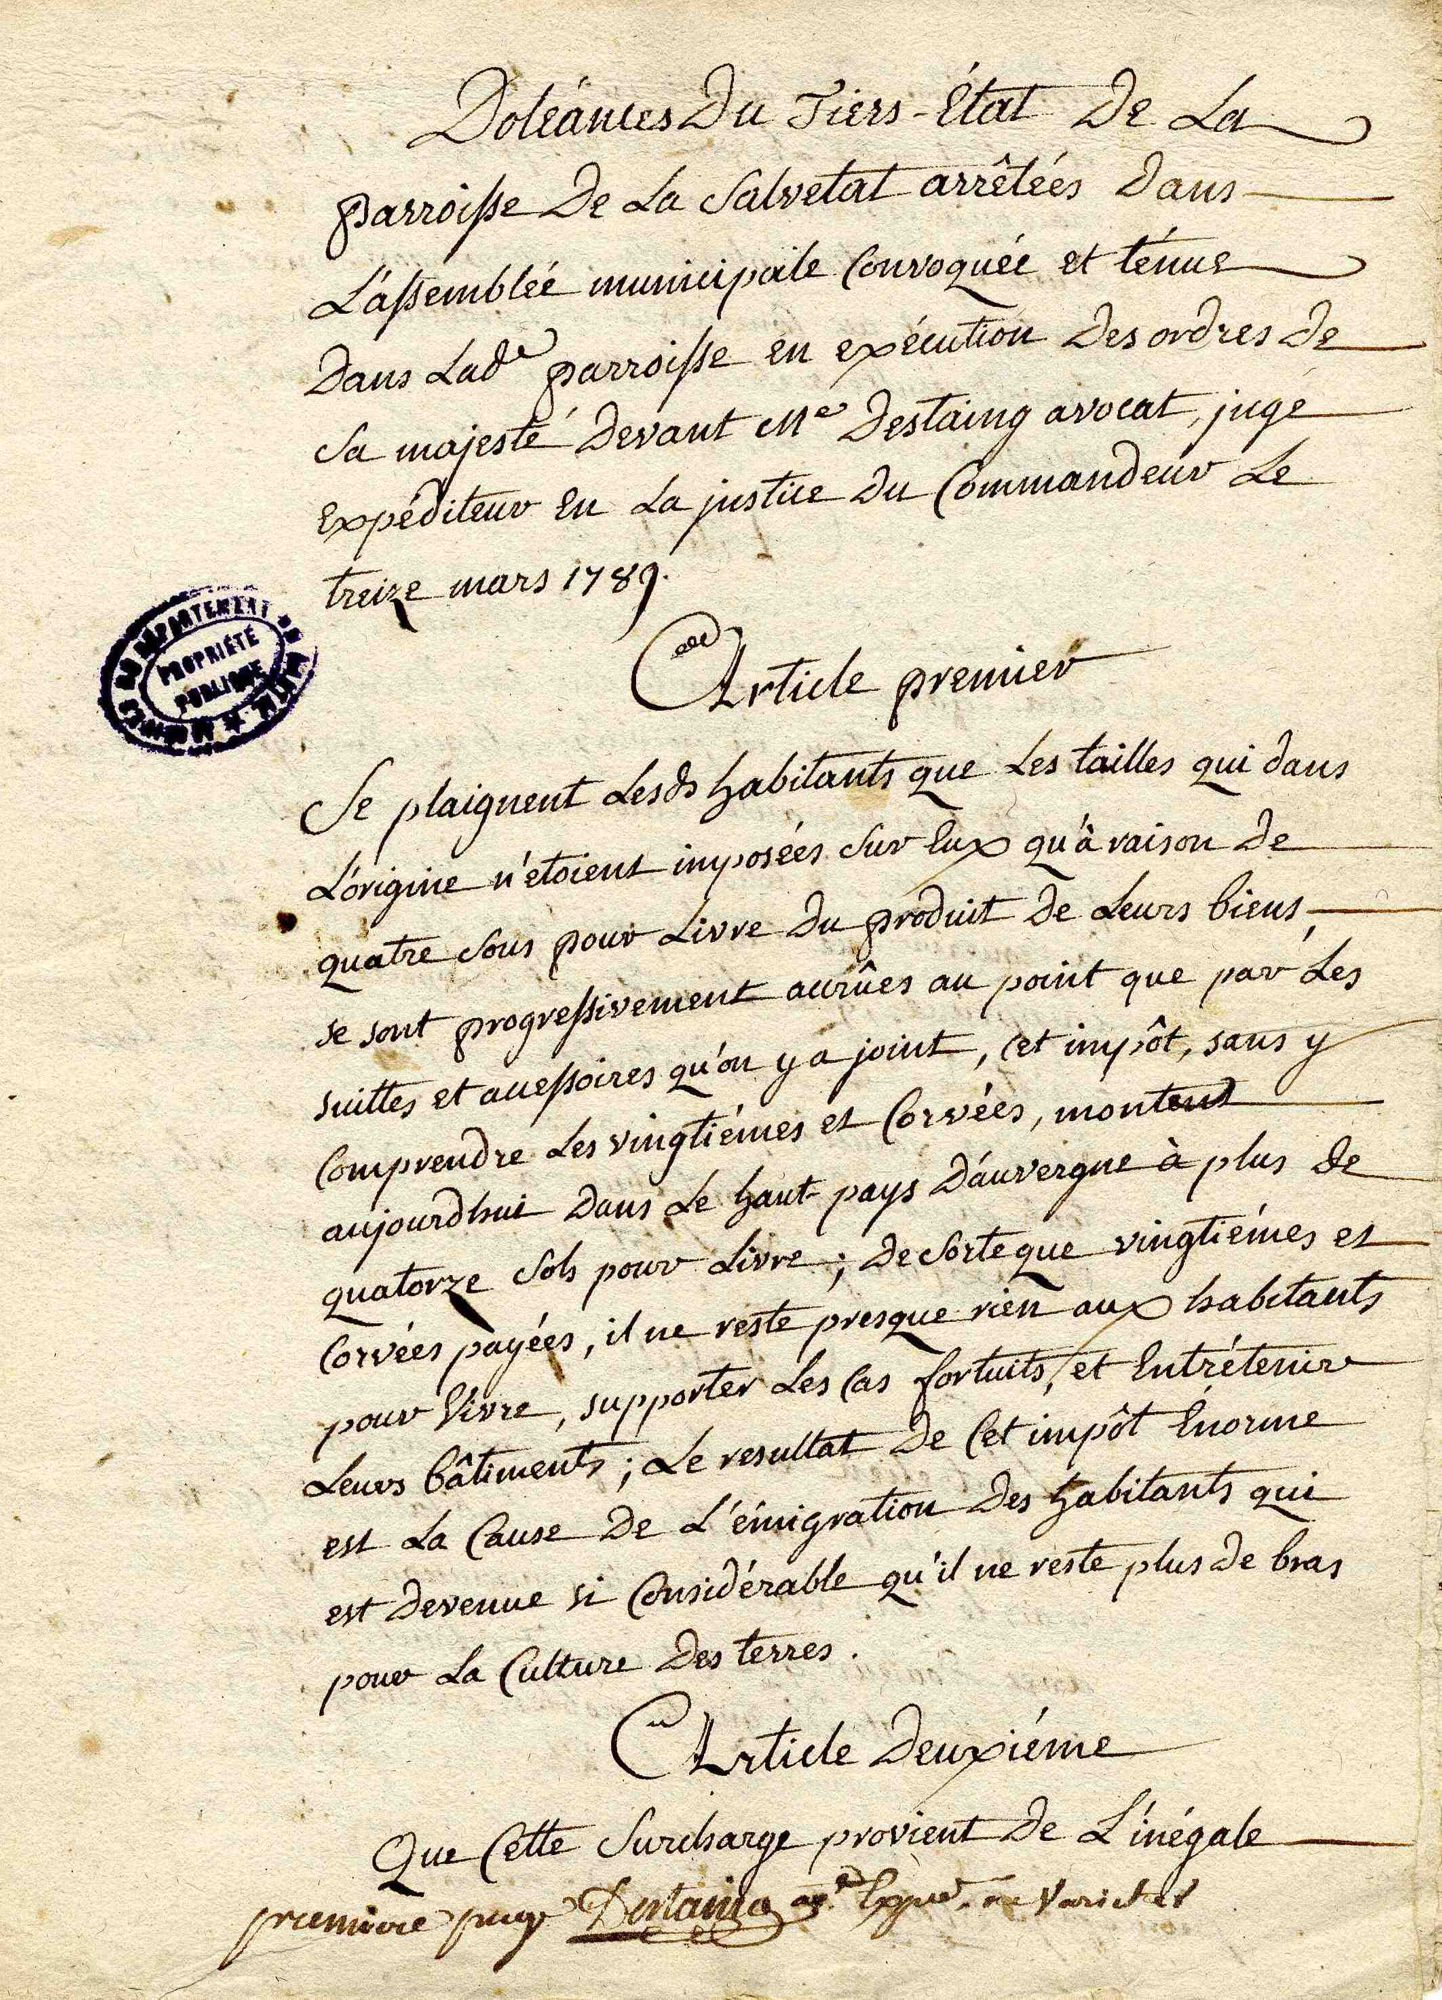 Doléances Du Tiers-État De La
parroisse De La Salvetat arrêtées dans
L'assemblée municipale Convoquée et ténue
Dans Lade parroisse en exécution Des ordres de
Sa majesté Devant Me Destaing avocat, juge
Expéditeur En La justice Du Commandeur Le
treize mars 1789.
ARCHIVES DU DÉPARTEMENT DU CANTAL
PROPRIÉTÉ
PUBLIQUE
Article premier
Se plaignent Lesds habitants que Les tailles qui dans
L'origine n'etoient imposées Sur Eux qu'à raison de
quatre Sous pour Livre Du produit de Leurs biens,
se sont progressivement accrûes au point que par Les
suittes et accessoires qu'on y a joint, cet impôt, sans y
Comprendre Les vingtiémes et Corvées, montent
aujourdhui Dans Le haut-pays D'auvergne à plus de
quatorze Sols pour Livre; de Sorte que vingtiémes et
Corvées payées, il ne reste presque rien aux habitants
pour Vivre, supporter Les Cas fortuits, et Entrétenir
Leurs bâtiments; Le resultat de Cet impôt Énorme
est La Cause De L'émigration Des habitants qui
est devenue si Considérable qu'il ne reste plus de bras
pour La Culture Des terres.
Article Deuxiéme
Que Cette Surcharge provient De L'inégale
premiere page Destaing ne Varietur